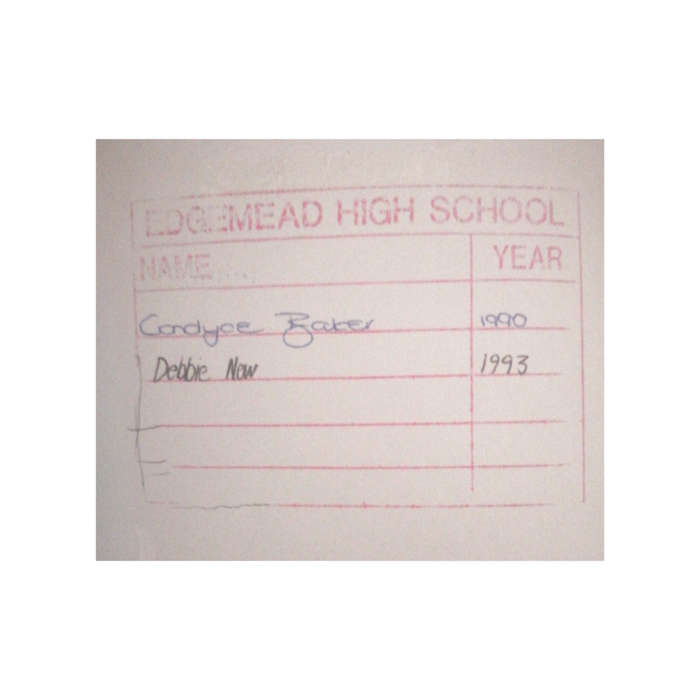 EDGEMEAD HIGH SCHOOL
NAME.... YEAR
Candyce Baker 1990
Debbie New 1993